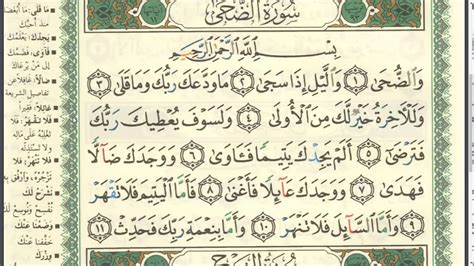 سُورَةُ الضُّحَى
بِسْمِ اللَّهِ الرَّحْمَٰنِ الرَّحِيمِ
وَالضُّحَىٰ ١ وَاللَّيْلِ إِذَا سَجَىٰ ٢ مَا وَدَّعَكَ رَبُّكَ وَمَا قَلَىٰ ٣
وَلَلْآخِرَةُ خَيْرٌ لَّكَ مِنَ الْأُولَىٰ ٤ وَلَسَوْفَ يُعْطِيكَ رَبُّكَ
فَتَرْضَىٰ ٥ أَلَمْ يَجِدْكَ يَتِيمًا فَآوَىٰ ٦ وَوَجَدَكَ ضَآلًّا
فَهَدَىٰ ٧ وَوَجَدَكَ عَآئِلًا فَأَغْنَىٰ ٨ فَأَمَّا الْيَتِيمَ فَلَا تَقْهَرْ
٩ وَأَمَّا السَّآئِلَ فَلَا تَنْهَرْ ١٠ وَأَمَّا بِنِعْمَةِ رَبِّكَ فَحَدِّثْ ١١
سُورَةُ الشَّرْحِ
مَا قَلَى: مَا
مُنْذُ أَحَبَّكَ
يَجِدْكَ:
فَآوَى:
إِلَى مَنْ يَرْعَاكَ
ضَالًّا:
الشريعة
عَائِلًا:
فَلَا تَقْهَرْ: فَلَا
تَغْلِبْهُ عَلَى مَالِهِ
وَلَا تَسْتَذِلَّهُ
فَلَا تَنْهَرْ: فَلَا
نَشْرَحْ لَكَ
وَضَعْنَا عَنْكَ
خَفَّفْنَا عَنْكَ
وِزْرَكَ